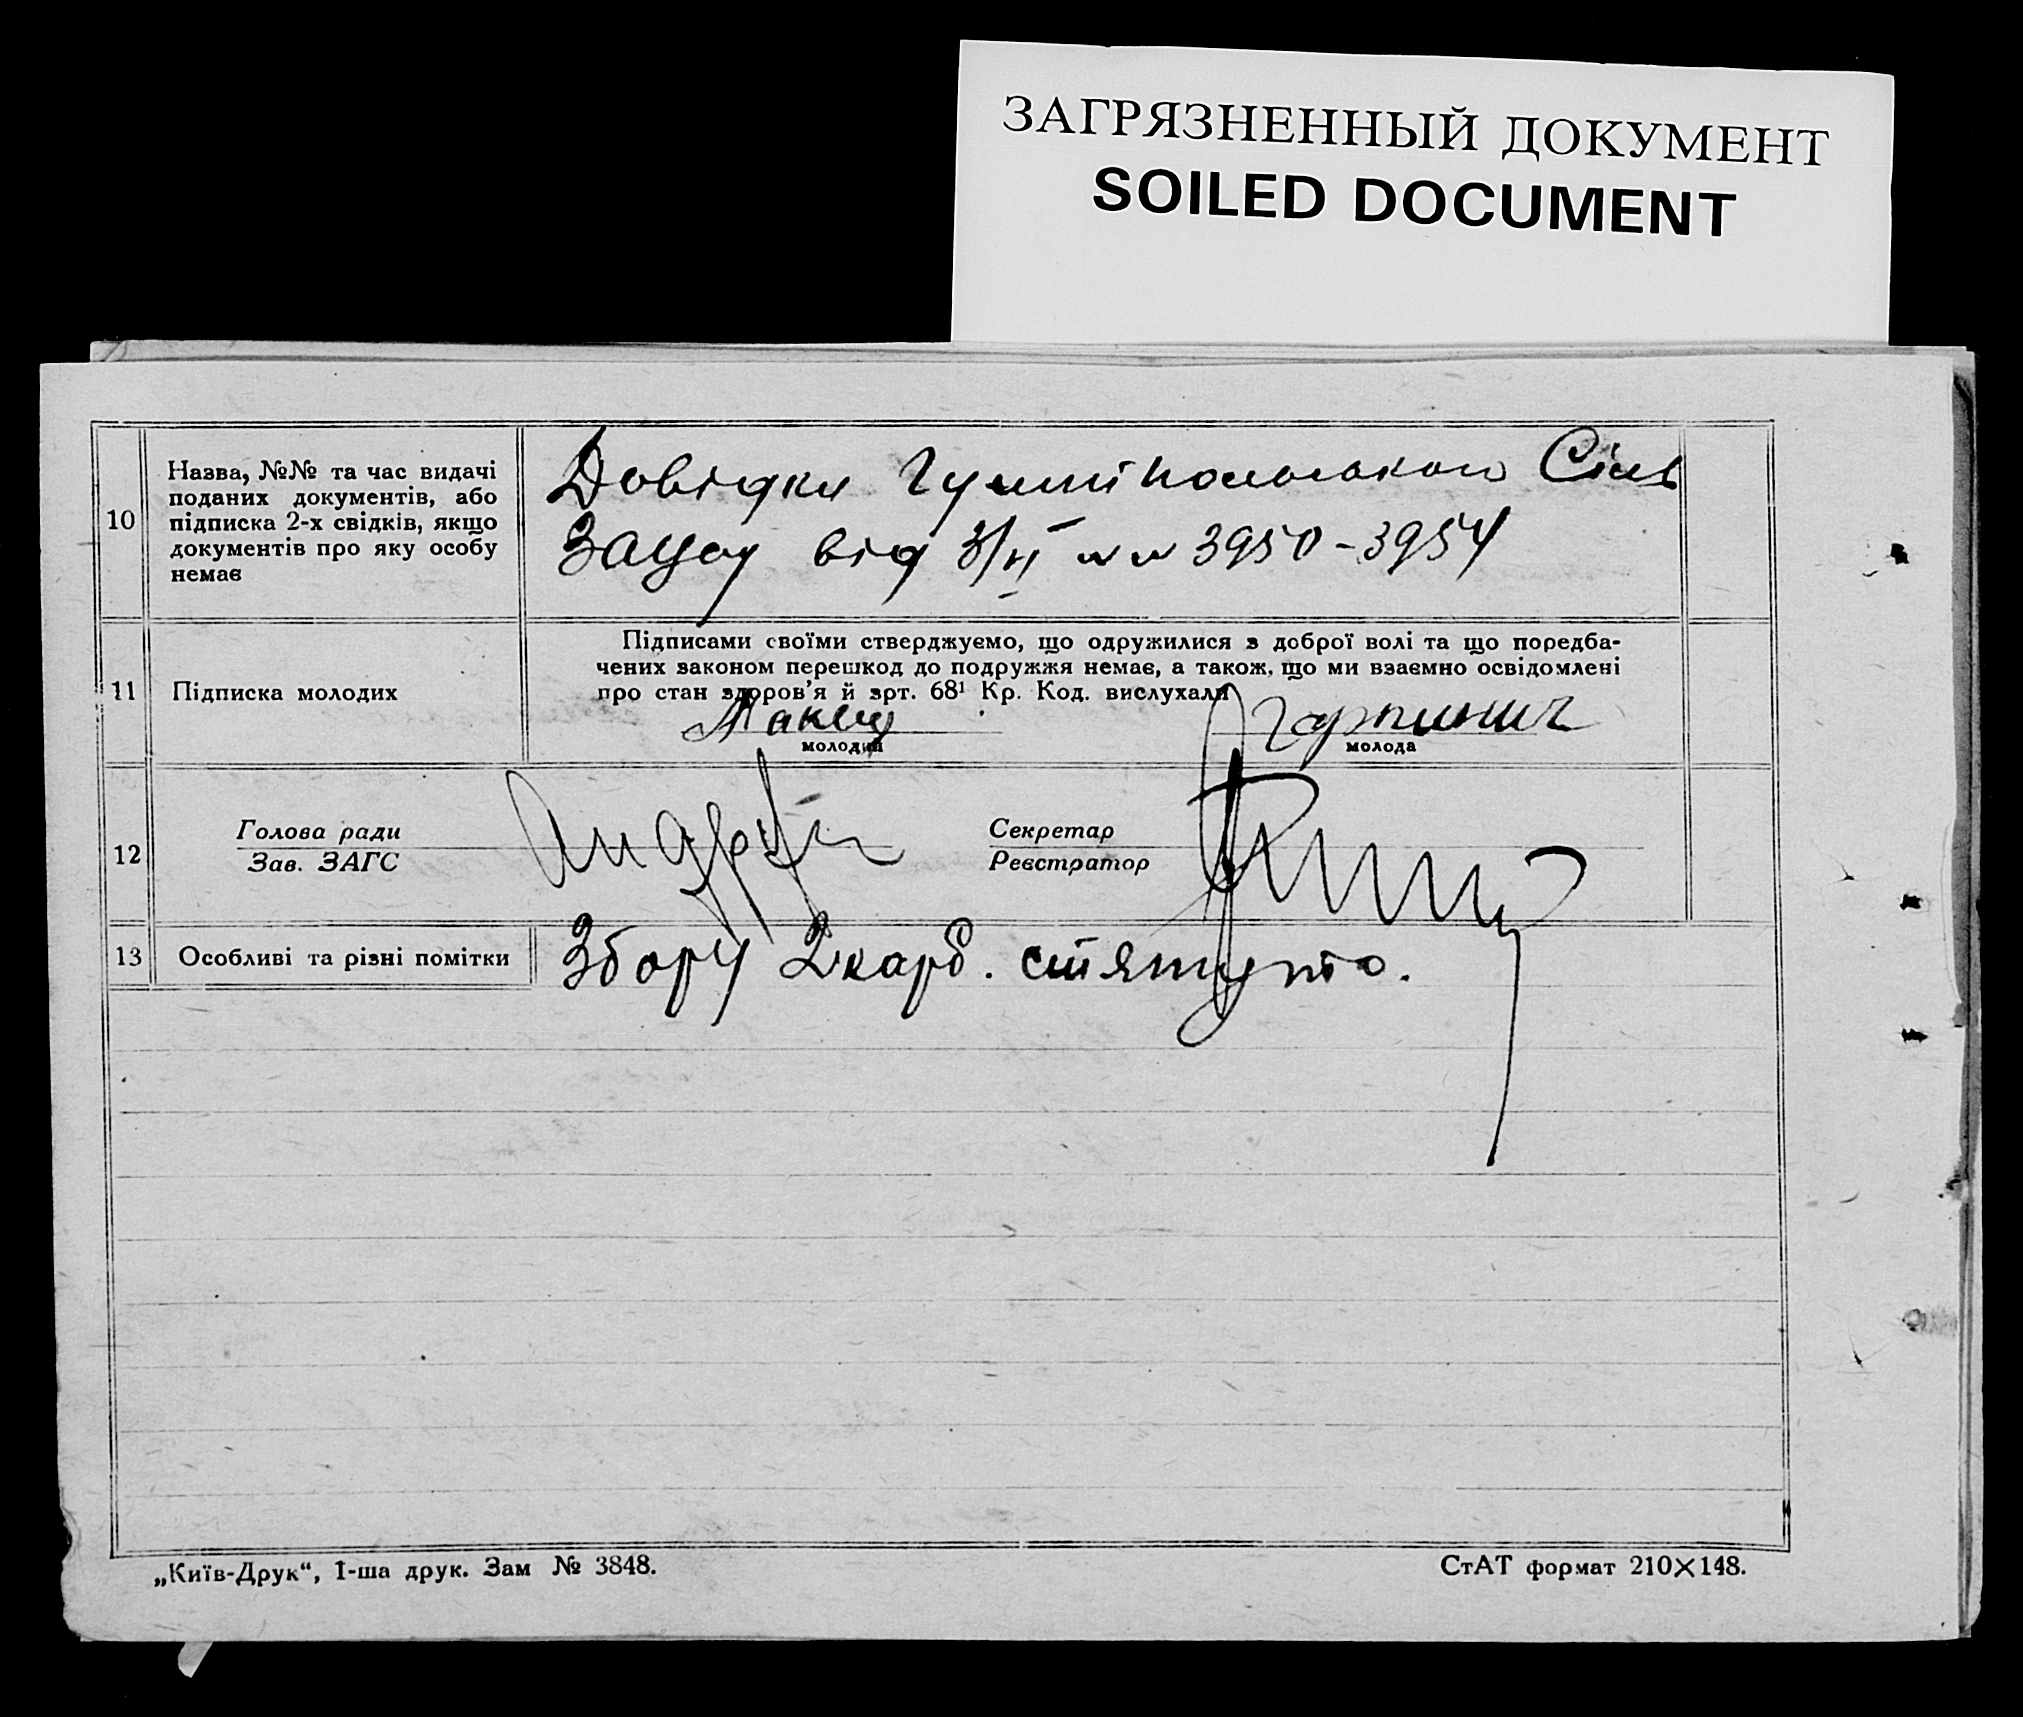 ЗАГРЯЗНЕННЫЙ ДОКУМЕНТ
SOILED DOCUMENT
10
Назва, №№ та час видачі
поданих документів, або
підписка 2-х свідків, якщо
документів про яку особу
немає
Довідки Сіль
від 3/VI №№ 3950-3954
11
Підписка молодих
Підписами своїми стверджуємо, що одружилися з доброї волі та що поредба-
чених законом перешкод до подружжя немає, а також, що ми взаємно освідомлені
про стан здоров'я й арт. 68¹ Кр. Код. вислухали
молодий
молода
12
Голова ради
Зав. ЗАГС
Секретар
Реєстратор
13
Особливі та різні помітки
Збору 2 карб. стягнуто.
„Київ-Друк“, 1-ша друк. Зам № 3848.
СтАТ формат 210×148.